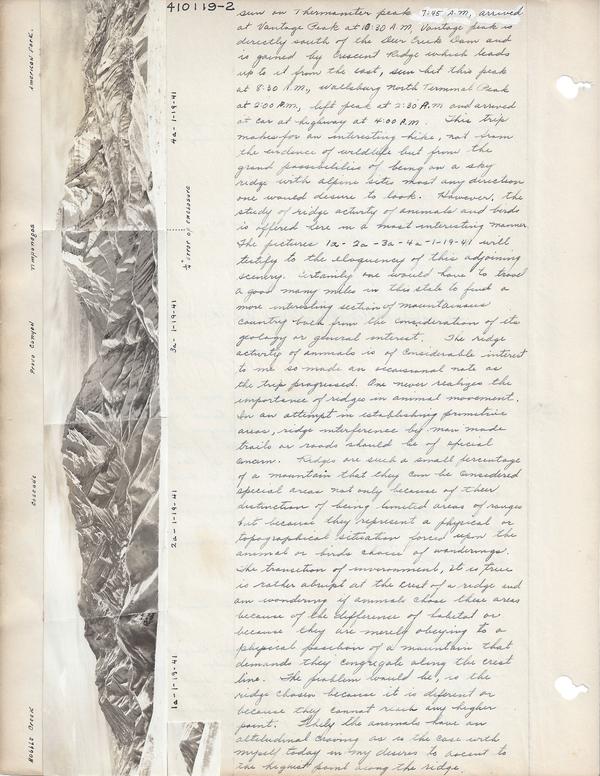 410119-2
sun on Thermometer peak 7:45 A.M, arrived
at Vantage Peak at 10:30 A.M. Vantage peak is
directly south of the Deer Creek Dam and
is gained by Crescent Ridge which leads
up to it from the east, sun hit this peak
at 8:30 A.M., Wallsburg North Terminal Peak
at 2:00 P.M., left peak at 2:30 P.M and arrived
at car at highway at 4:00 P.M. This trip
makes for an interesting hike, not from
the evidence of wildlife but from the
grand possibilities of being on a sky
ridge with alpine sites most any direction
one would desire to look. However, the
study of ridge activity of animals and birds
is offered here in a most interesting manner.
The pictures 1a-2a-3a-4a-1-19-41 will
testify to the eloquency of this adjoining
scenery. Certainly one would have to travel
a good many miles in this state to find a
more interesting section of mountainous
country both from the consideration of its
geology or general interest. The ridge
activity of animals is of considerable interest
to me so made an occasional note as
the trip progressed. One never realizes the
importance of ridges in animal movement.
In an attempt in establishing primitive
areas, ridge interference by man made
trails or roads should be of special
concern. Ridges are such a small percentage
of a mountain that they can be considered
special areas not only because of their
distinction of being limited areas of ranges
but because they represent a physical or
topographical situation forced upon the
animal or birds choice of wanderings.
The transition of environment, it is true
is rather abrupt at the crest of a ridge and
am wondering if animals chose these areas
because of the difference of habitat or
because they are merely obeying to a
physical position of a mountain that
demands they congregate along the crest
line. The problem would be, is the
ridge chosen because it is diferent or
because they cannot reach any higher
point. Possibly the animals have an
altitudinal craving as is the case with
myself today in my desires to ascent to
the highest point along the ridge.
American Fork.
Timponogos
Provo Canyon
Cascade
Hobble Creek
4a-1-19-41
3a-1-19-41
2a-1-19-41
1a-1-19-41
error of enclosure